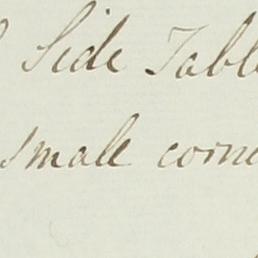 Side Tabl
smale corne